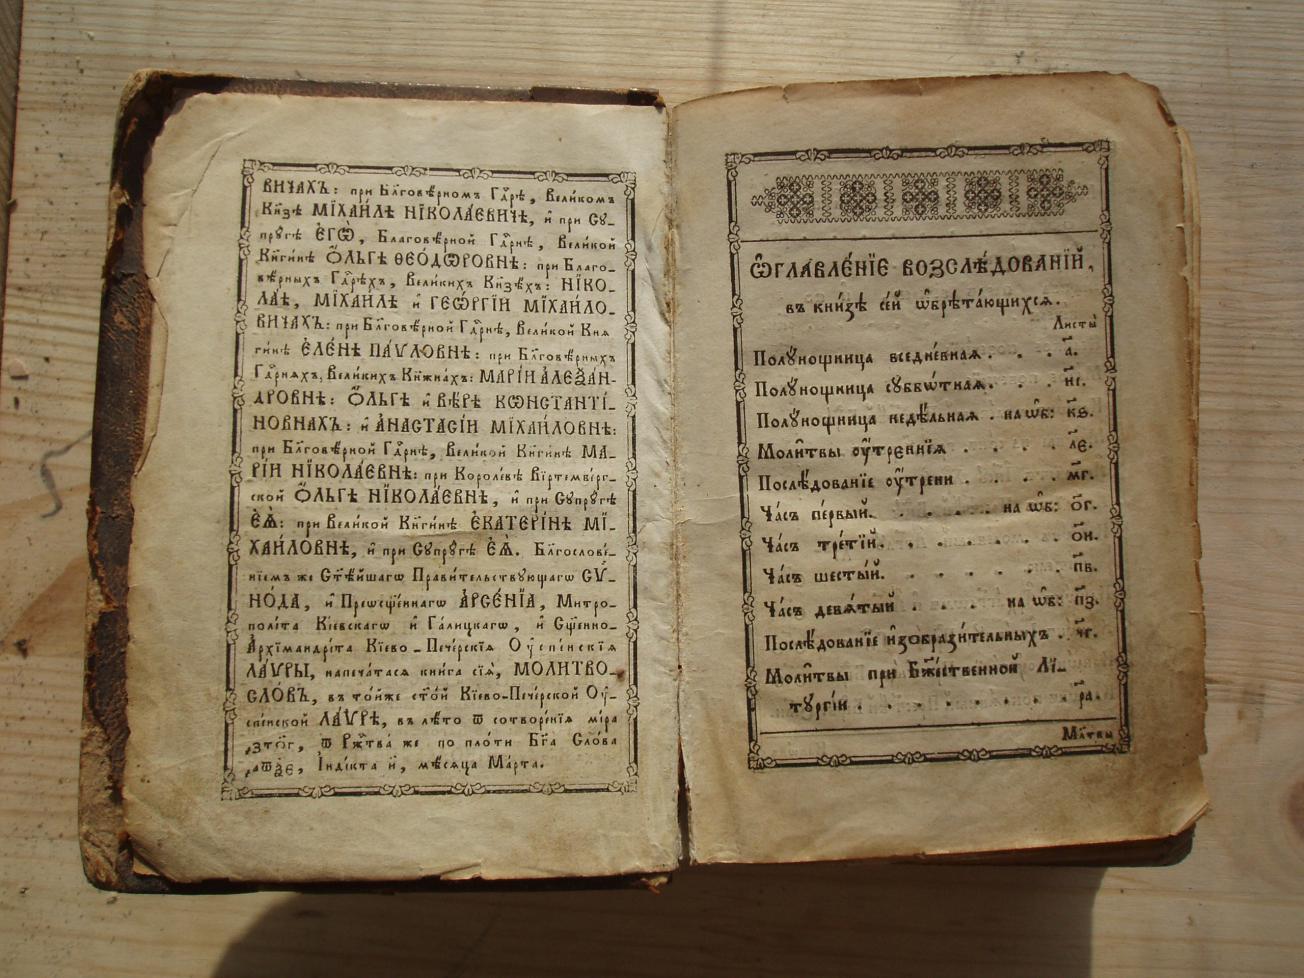 ВИЧАХЪ: при Бл҃говѣ́рномъ Гдⷭ҇рѣ, Вели́комъ
Кн҃зѣ МІХАИ́ЛѢ НІКОЛА́ЕВИЧѢ, и҆ при Сꙋ-
прꙋ́гѣ Є҆ГѠ̀, Благовѣ́рной Гдⷭ҇рнѣ, Вели́кой
Кн҃ги́нѣ Ѻ҆́ЛЬГѢ ѲЕО́ДѠРОВНѢ: при Благо-
вѣ́рныхъ Гдⷭ҇рѣхъ, Вели́кихъ Кн҃зѣ́хъ: НІКО-
ЛА́Ѣ, МІХАИ́ЛѢ и҆ ГЕѠ́РГІИ МІХА́ЙЛО-
ВИЧАХЪ: при Бл҃говѣ́рной Гдⷭ҇рнѣ, Вели́кой Кня
ги́нѣ Є҆ЛЕ́НѢ ПА́ѴЛОВНѢ: при Бл҃говѣ́рныхъ
Гдⷭ҇рняхъ, Вели́кихъ Кн҃жна́хъ: МАРІ́И А҆ЛЕѮА́Н-
ДРОВНѢ: Ѻ҆́ЛЬГѢ и҆ ВѢ́РѢ КѠНСТАНТІ́-
НОВНАХЪ: и҆ А҆НАСТАСІ́И МІХА́ЙЛОВНѢ:
при Бл҃говѣ́рной Гдⷭ҇рнѣ, Вели́кой Кн҃ги́нѣ МА-
РІ́И НІКОЛА́ЕВНѢ: при Короле́вѣ Ві́ртембе́рг-
ской Ѻ҆́ЛЬГѢ НІКОЛА́ЕВНѢ, и҆ при Сꙋпрꙋ́гѣ
Є҆Ѧ̀: при Вели́кой Кн҃ги́нѣ Є҆КАТЕРІ́НѢ МІ-
ХА́ЙЛОВНѢ, и҆ при Сꙋпрꙋ́гѣ Є҆Ѧ̀. Благослове́-
ніемъ же Ст҃ѣ́йшагѡ Прави́тельствꙋющагѡ СѴ-
НО́ДА, и҆ Преѡсщ҃е́ннагѡ А҆РСЕ́НІА, Митро-
поли́та Кі́евскагѡ и҆ Га́лицкагѡ, и҆ Сщ҃е́нно-
А҆рхімандрі́та Кі́ево-Пече́рскія Оу҆спе́нскія
ЛА́ѴРЫ, напеча́тася кни́га сія̀, МОЛИТВО-
СЛО́ВЪ, въ то́йже ст҃о́й Кі́ево-Пече́рской Оу҆-
спе́нской ЛА́ѴРѢ, въ лѣ́то ѿ сотворе́нія мі́ра
҂зто҃г, ѿ Рж҇тва̀ же по пло́ти Бг҃а Сло́ва
҂аѿѯ҃е, І҆нді́кта и҃, мѣ́сяца Ма́рта.
Ѡ҆ГЛАВЛЕ́НІЕ ВОЗСЛѢ́ДОВАНІЙ,
въ кни́зѣ се́й ѡ҆брѣта́ющихся.
Листы̀
Полꙋ́нощница вседне́вная. . . . а҃.
Полꙋ́нощница сꙋббѡ́тная. . . . и҃і.
Полꙋ́нощница недѣ́льная . на ѡ҆б: кѳ҃.
Моли̑твы оу҆́треннія . . . . . ле҃.
Послѣ́дованіе оу҆́трени . . . . . мг҃.
Ча́съ пе́рвый. . . . . . на ѡ҆б: ог҃.
Ча́съ тре́тій. . . . . . . ои҃.
Ча́съ шесты́й. . . . . . . пв҃.
Ча́съ девя́тый . . . . на ѡ҆б: пз҃.
Послѣ́дованіе и҆зобрази́тельныхъ . . чг҃.
Моли̑твы при Бж҃е́ственной Лі-
тꙋргі́и . . . . . . . . ра҃.
Мл҃твы